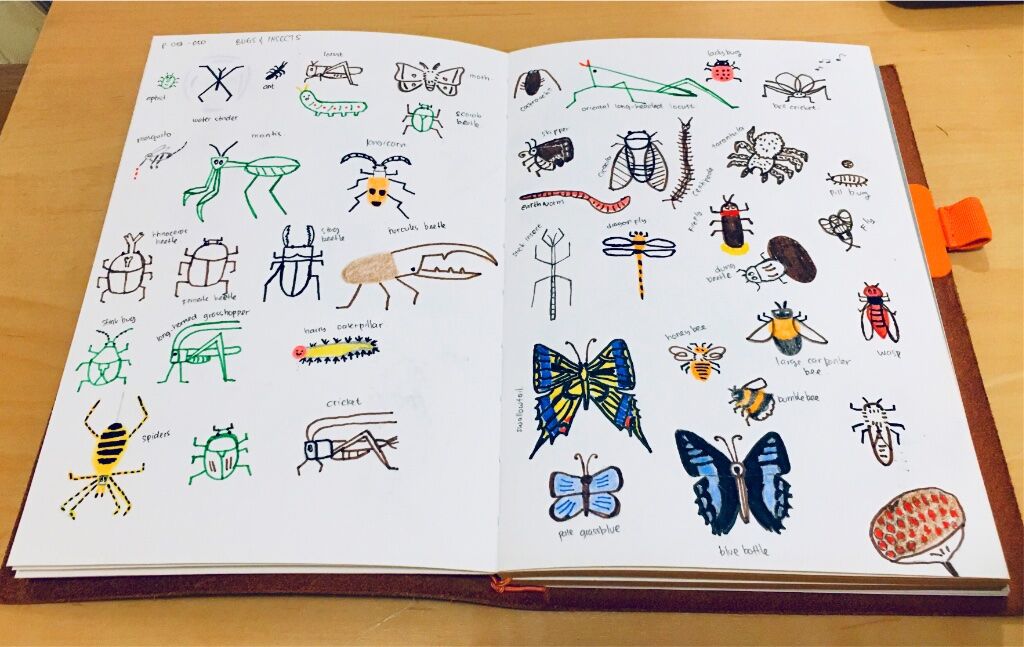 BUGS & INSECTS
aphid
water strider
ant
locust
moth
scarab
beetle
mosquito
mantis
longicorn
rhinoceros
beetle
female beetle
stag
beetle
hurcules beetle
stink bug
long-horned grasshopper
hairy caterpillar
spiders
cricket
cockroach
oriental long-headed locust
ladybug
bell cricket
skipper
cicada
centipede
tarantula
pill bug
earthworm
stick insect
dragonfly
firefly
fly
dung
beetle
wasp
honey bee
large carpenter
bee
bumblebee
swallowtail
pale grassblue
blue bottle